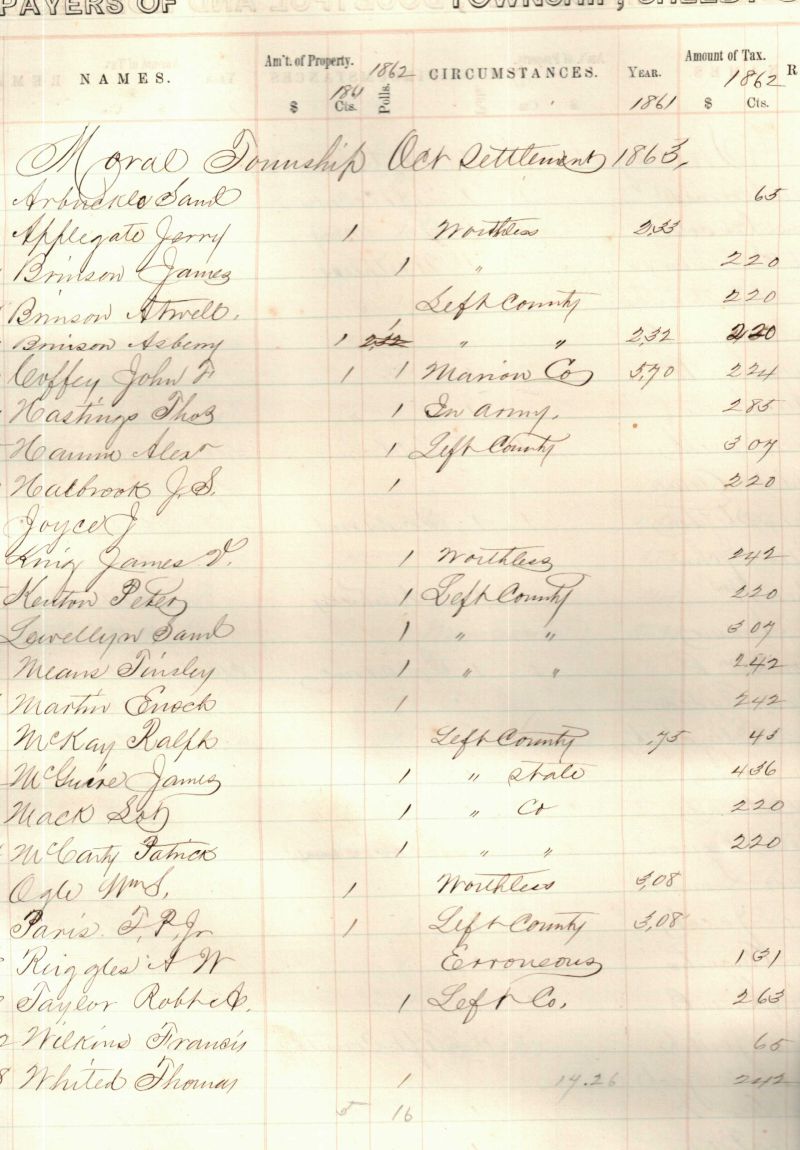 PAYERS OF TOWNSHIP, SHELBY
NAMES. Am't. of Property. $ 1861 Cts. 1862 Polls. CIRCUMSTANCES. YEAR. 1861 Amount of Tax. $ 1862 Cts. R
Moral Township Oct Settlement 1863.
Arbuckle Saml 65
Applegate Jerry 1 Worthless 2,33
Brinson James 1 " 220
Brinson Atwell. Left County 220
Brinson Asberry 1 1 2,32 " " 2,32 220
Coffey John F 1 1 Marion Co 5,70 224
Hastings Thos 1 In army. 285
Hamm Alexr 1 Left County 307
Halbrook J. S. 1 220
Joyce J
King James V. 1 Worthless 242
Kenton Peter 1 Left County 220
Lewellyn Saml 1 " " 307
Means Tinsley 1 " " 242
Martin Enoch 1 242
McKay Ralph Left County ,75 43
McGuire James 1 " State 436
Mack Sol 1 " Co 220
McCarty Patrick 1 " " 220
Ogle Wm S. 1 Worthless 3,08
Paris. T. P. Jr 1 Left County 3,08
Ruggles A W Erroneous 131
Taylor Robt A. 1 Left Co. 263
2 Wilkins Francis 65
8 Whited Thomas 1 17.26 242
5 16